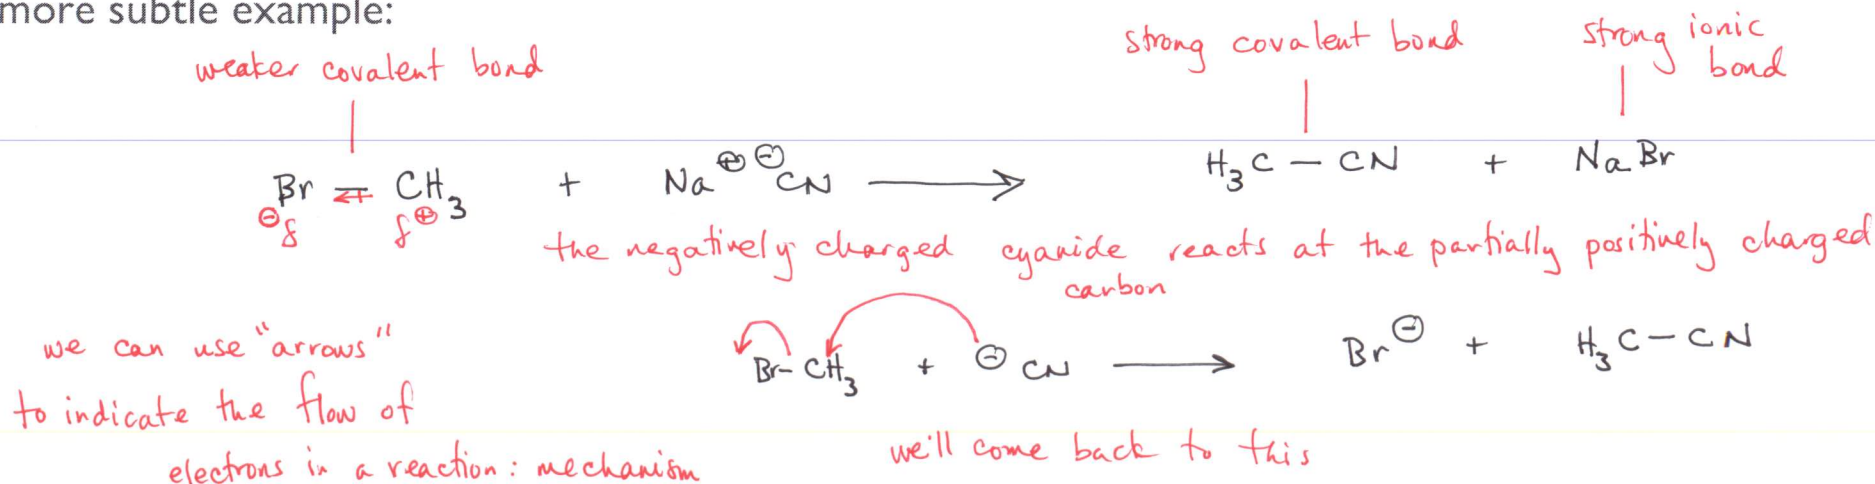 more subtle example:
weaker covalent bond
strong covalent bond
strong ionic bond
Br – CH3 + Na⊕ ⊖CN ⟶ H3C – CN + NaBr
⊖δ δ⊕
the negatively charged cyanide reacts at the partially positively charged
carbon
we can use "arrows"
to indicate the flow of
electrons in a reaction: mechanism
Br– CH3 + ⊖CN ⟶ Br⊖ + H3C–CN
we'll come back to this